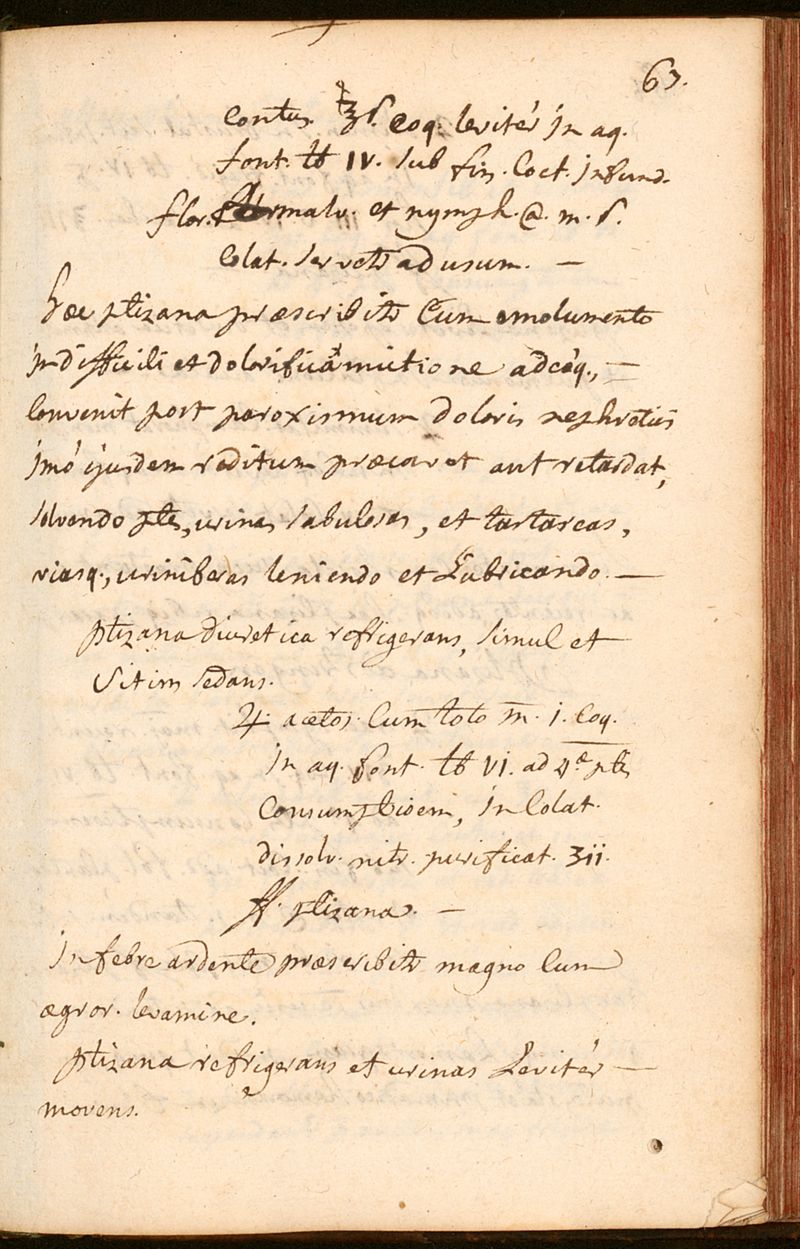 63.
Contus. ʒß. Coq. levitér jn aq.
font. ℔ IV. sub fin. Coct. jnfund.
flor. malv. et nymph. @. m. ß.
Colat. servetr ad usum. —
hæc ptizana præscribitr Cum emolumento
jn difficili et dolorificâ mictione adeóq., —
Convenit post paroxismum doloris nephretici
jmó ejusdem reditum præcavet aut retardat,
solvendo ptes, urinas sabulosas, et tartareas,
viasq., uriniferas leniendo et Lubricando. —
ptizana diuretica refrigerans, simul et
Sitim sedans.
♃. acetos. Cum toto m. j. Coq.
jn aq. font. ℔ VI. ad 4æ ptis
Consumptioem, jn Colat.
dissolv. nitr. purificat. ʒii.
ff. ptizana. —
jn febre ardente præscribitr magno Cum
ægror. levamine.
ptizana refrigerans et urinas Levitér —
movens.